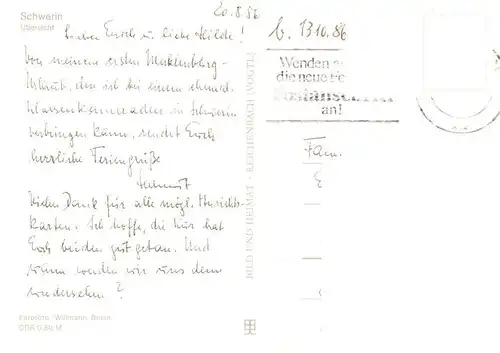 Schwerin
Übersicht
20.8.86
b. 13.10.86
Lieber Erich u. liebe Hilde!
Von meinem ersten Mecklenburg-
Urlaub, den ich bei einem ehemal.
Klassenkameraden in Schwerin
verbringen kann, sendet Euch
herzliche Feriengrüße
Helmut
Vielen Dank für alle mögl. Ansichts-
karten. Ich hoffe, die Kur hat
Euch beiden gut getan. Und
wann werden wir uns denn
wiedersehen?
Wenden
die neue
an!
Fam.
BILD UND HEIMAT · REICHENBACH (VOGTL)
Farbfoto: Willmann, Berlin
DDR 0,80 M